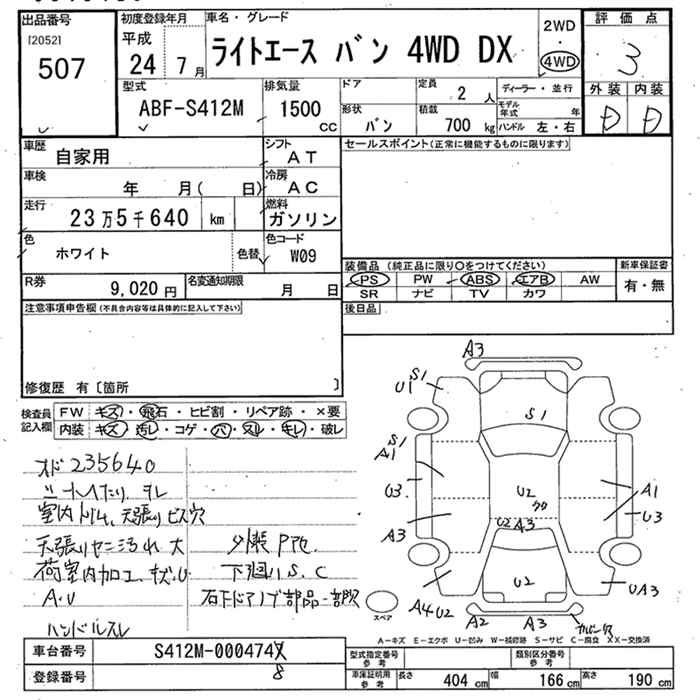 出品番号
[2052]
507
初度登録年月
平成
24 7 月
車名・グレード
ライトエース バン 4WD DX
2WD
4WD
評価点
3
外装 内装
D D
型式
ABF-S412M
排気量
1500
cc
ドア
形状
バン
定員
2 人
積載
700 kg
ディーラー・並行
モデル年式 年
ハンドル 左・右
車歴
自家用
シフト
AT
車検
年 月( 日)
冷房
AC
走行
23万5千640 km
燃料
ガソリン
色
ホワイト
色替
色コード
W09
R券
9,020 円
名変通知期限
月 日
セールスポイント(正常に機能するものに限ります)
装備品 (純正品に限り○をつけてください)
PS PW ABS エアB AW
SR ナビ TV カワ
新車保証書
有・無
後日品
注意事項申告欄(不具合内容等は具体的に記入して下さい)
修復歴 有〔箇所 〕
検査員記入欄
FW キズ・飛石・ヒビ割・リペア跡・×要
内装 キズ・汚レ・コゲ・穴・スレ・キレ・破レ
オド235640
シートヘたり、ヨレ
室内トリム、天張りビス穴
天張りヤニ汚れ大
荷室内加工、キズ.U
A.U
ハンドルスレ
外装P色.
下廻りS.C
右下ドアノブ部品一部欠
A3
S1
U1
S1
S1
A1
U3
A3
A4 U2
U2
U2 A3
U2
A1
U3
UA3
A2
A3
スペア
A-キズ E-エクボ U-凹み W-補修跡 S-サビ C-腐食 XX-交換済
車台番号
S412M-0004748
登録番号
型式指定番号
参考
類別区分番号
参考
車庫証明用
参考
長さ 404 cm 幅 166 cm 高さ 190 cm